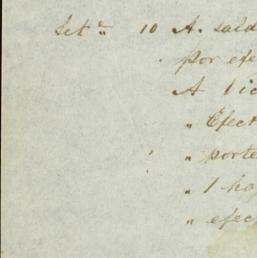 Set.e " 10 A. sald
por efe
A
" Efect
" porte
" 1 ho
" efec